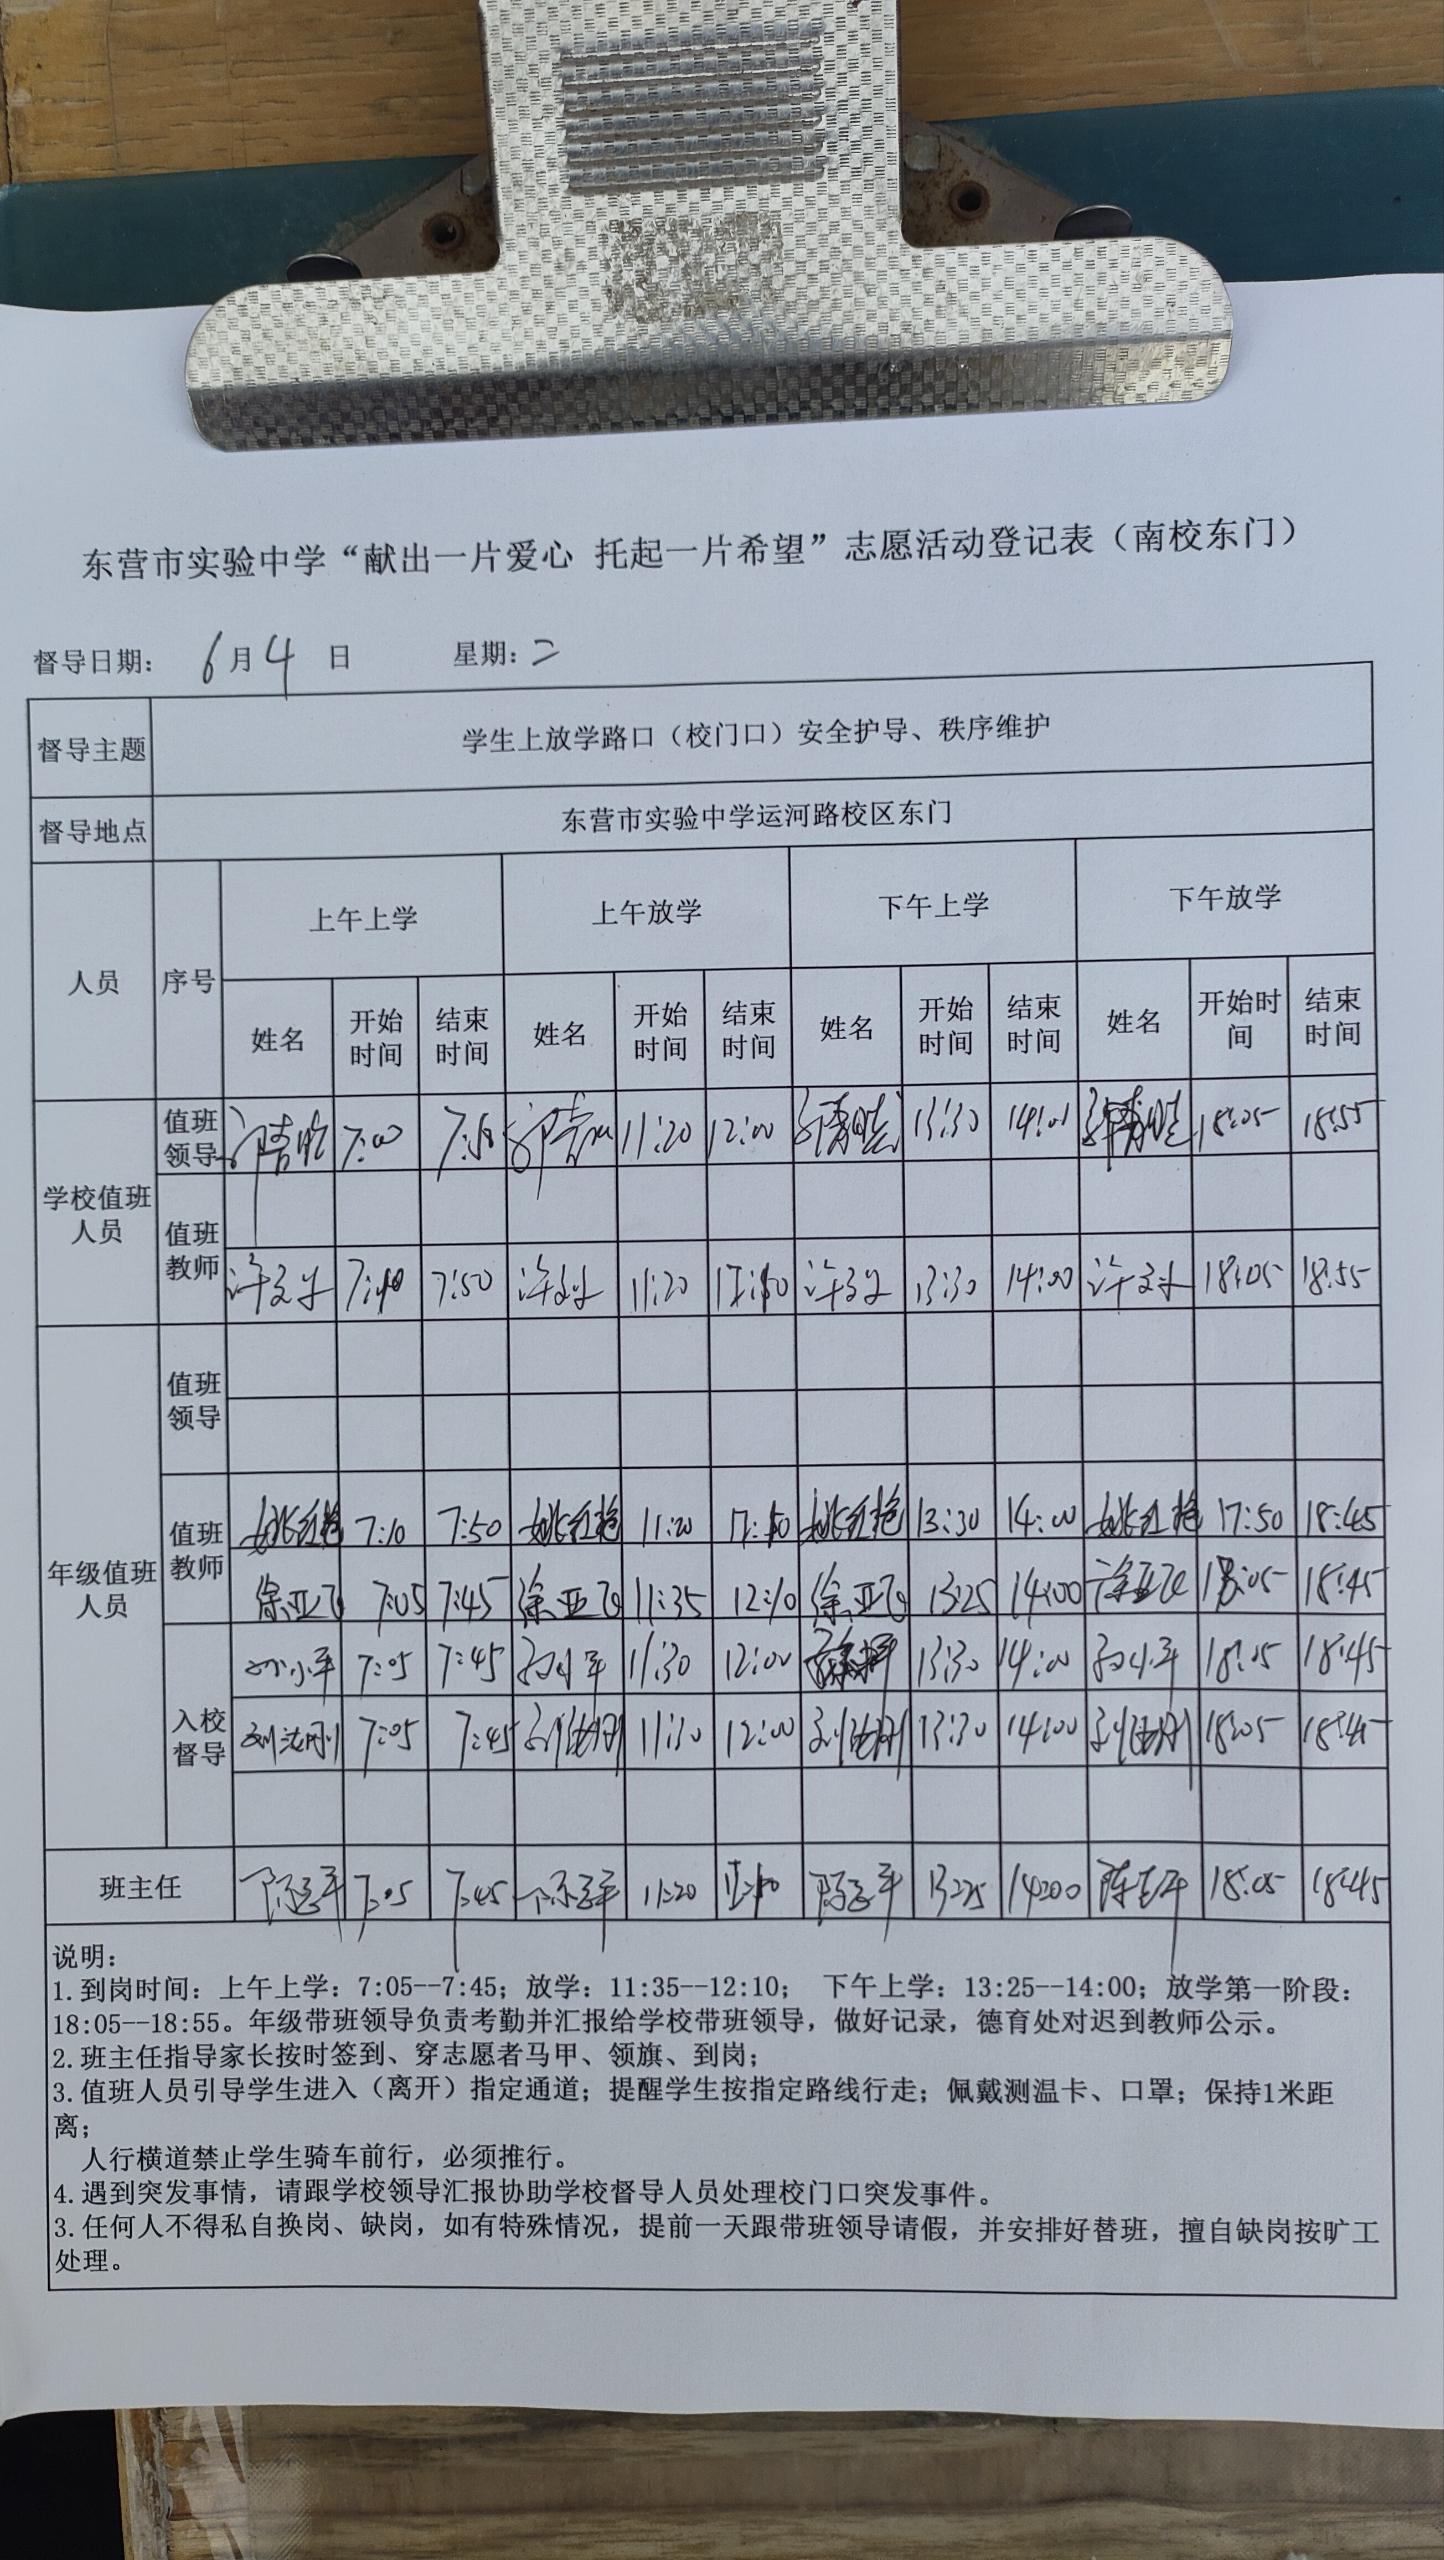 东营市实验中学“献出一片爱心 托起一片希望”志愿活动登记表（南校东门）
督导日期： 6月4日 星期：二
督导主题 学生上放学路口（校门口）安全护导、秩序维护
督导地点 东营市实验中学运河路校区东门
人员 序号 上午上学 上午放学 下午上学 下午放学
姓名 开始时间 结束时间 姓名 开始时间 结束时间 姓名 开始时间 结束时间 姓名 开始时间 结束时间
学校值班人员 值班领导 7:00 11:20 12:00 13:30 18:05 18:55
值班教师
7:50 11:20 13:30 14:00 18:05 18:55
年级值班人员 值班领导
值班教师 7:10 7:50 11:20 13:30 14:00 17:50 18:45
徐亚飞 7:05 7:45 徐亚飞 11:35 12:10 徐亚飞 13:25 14:00 徐亚飞 18:05 18:45
入校督导 孙小平 7:05 7:45 孙小平 11:30 12:00 13:30 14:00 孙小平 18:05 18:45
7:05 7:45 11:30 12:00 13:30 14:00 18:05 18:45
班主任 7:05 7:45 11:20 13:25 14:00 18:05 18:45
说明：
1.到岗时间：上午上学：7:05--7:45；放学：11:35--12:10； 下午上学：13:25--14:00；放学第一阶段：
18:05--18:55。年级带班领导负责考勤并汇报给学校带班领导，做好记录，德育处对迟到教师公示。
2.班主任指导家长按时签到、穿志愿者马甲、领旗、到岗；
3.值班人员引导学生进入（离开）指定通道；提醒学生按指定路线行走；佩戴测温卡、口罩；保持1米距
离；
人行横道禁止学生骑车前行，必须推行。
4.遇到突发事情，请跟学校领导汇报协助学校督导人员处理校门口突发事件。
3.任何人不得私自换岗、缺岗，如有特殊情况，提前一天跟带班领导请假，并安排好替班，擅自缺岗按旷工
处理。